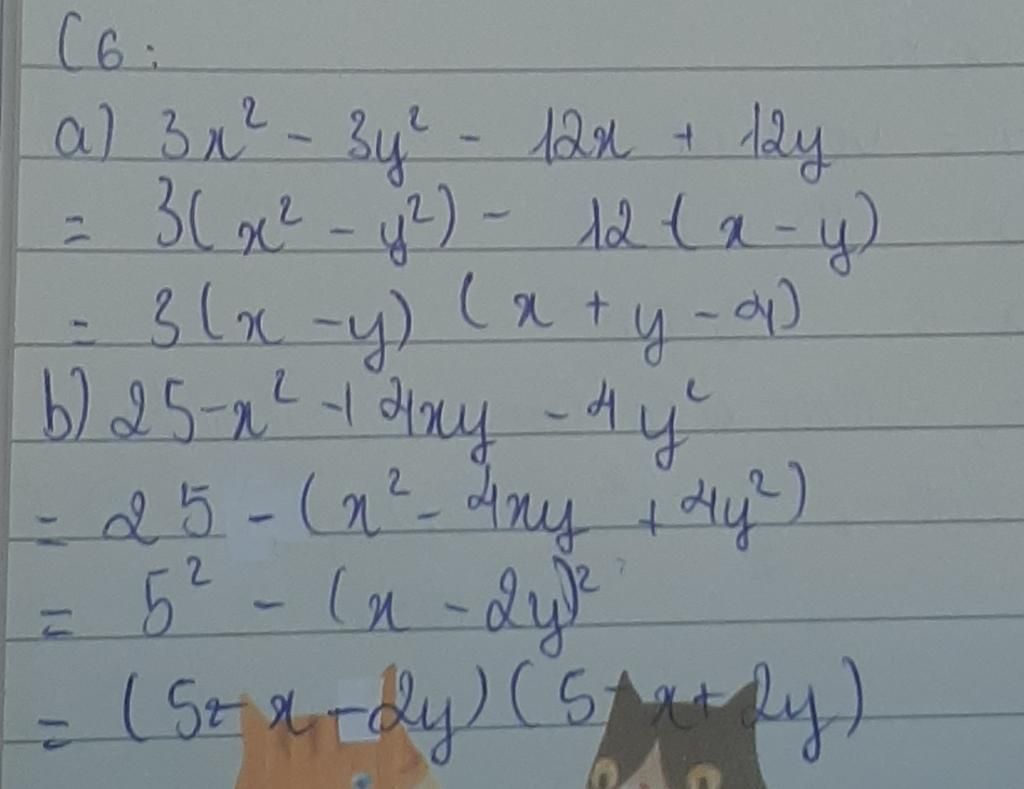 C6:
a) 3x² - 3y² - 12x + 12y
= 3(x² - y²) - 12(x - y)
= 3(x - y) (x + y - 4)
b) 25 - x² + 4xy - 4y²
= 25 - (x² - 4xy + 4y²)
= 5² - (x - 2y)²
= (5 + x - 2y) (5 - x + 2y)